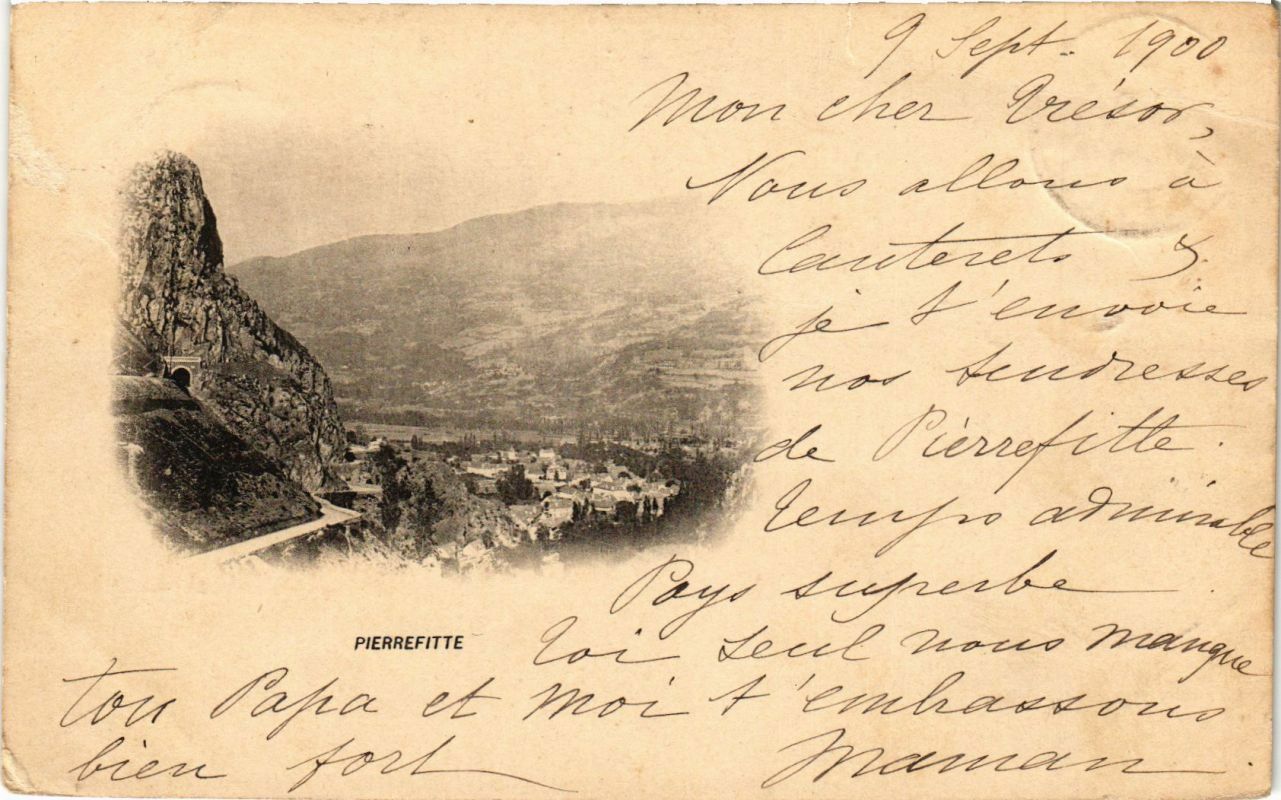 9 Sept. 1900
Mon cher Trésor,
Nous allons à
Cauterets &
je t'envoie
nos tendresses
de Pierrefitte.
Temps admirable
Pays superbe
PIERREFITTE
Toi seul nous manque
ton Papa et moi t'embrassons
bien fort Maman